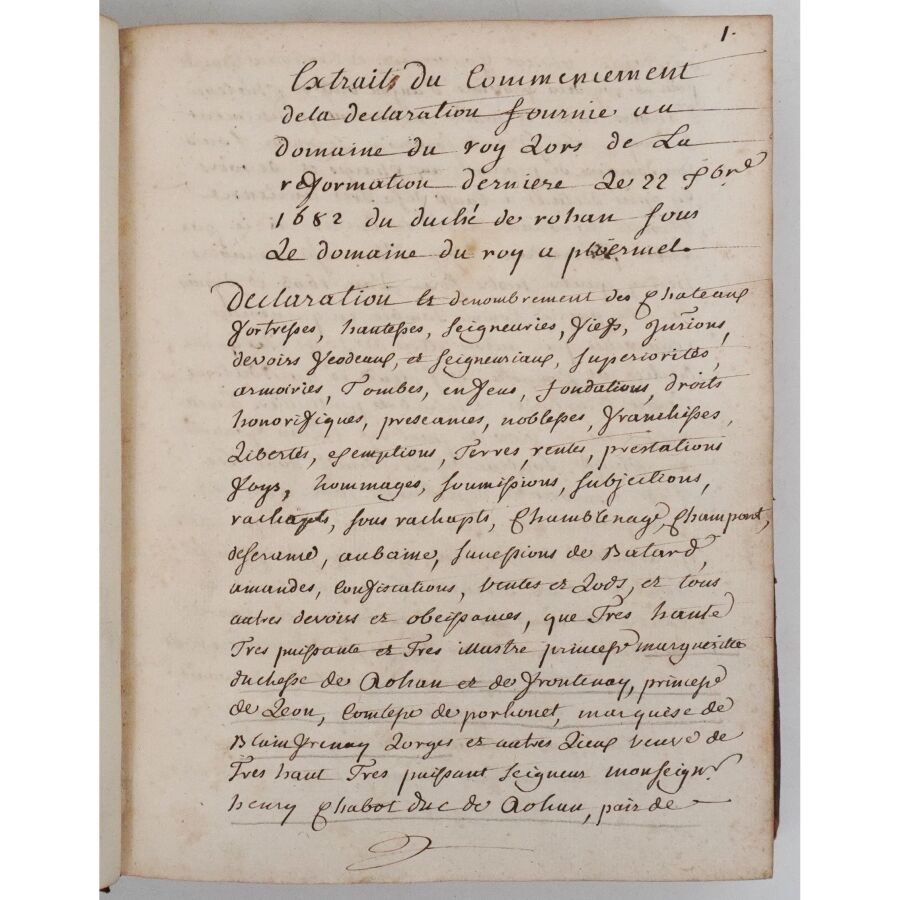 1.
Extraits du Commencement
dela declaration fournie au
domaine du roy Lors de La
reformation derniere Le 22 9bre
1682 du duché de rohan sous
Le domaine du roy a ploermel.
Declaration et denombrement des Chateaux
fortresses, hautesses, seigneuries, fiefs, Jurions,
devoirs feodeaux, et seigneuriaux, superiorités,
armoiries, Tombes, enfeus, fondations, droits
honorifiques, preseances, noblesses, franchisses,
Libertés, exemptions, Terres, rentes, prestations
foys, hommages, soumissions, subjections,
rachapts, sous rachapts, Chamblenage, Champart,
desérance, aubaine, sucessions de Batard
amandes, Confiscations, Ventes et Lods, et tous
autres devoirs et obeissances, que Tres haute
Tres puissante et Tres illustre princesse marguerite
duchesse de Rohan et de frontenay, princesse
de Leon, Comtesse de porhouet, marquise de
Blain frenay Lorges et autres Lieux veuve de
Tres haut Tres puissant seigneur monseignr.
henry Chabot duc de Rohan, pair de